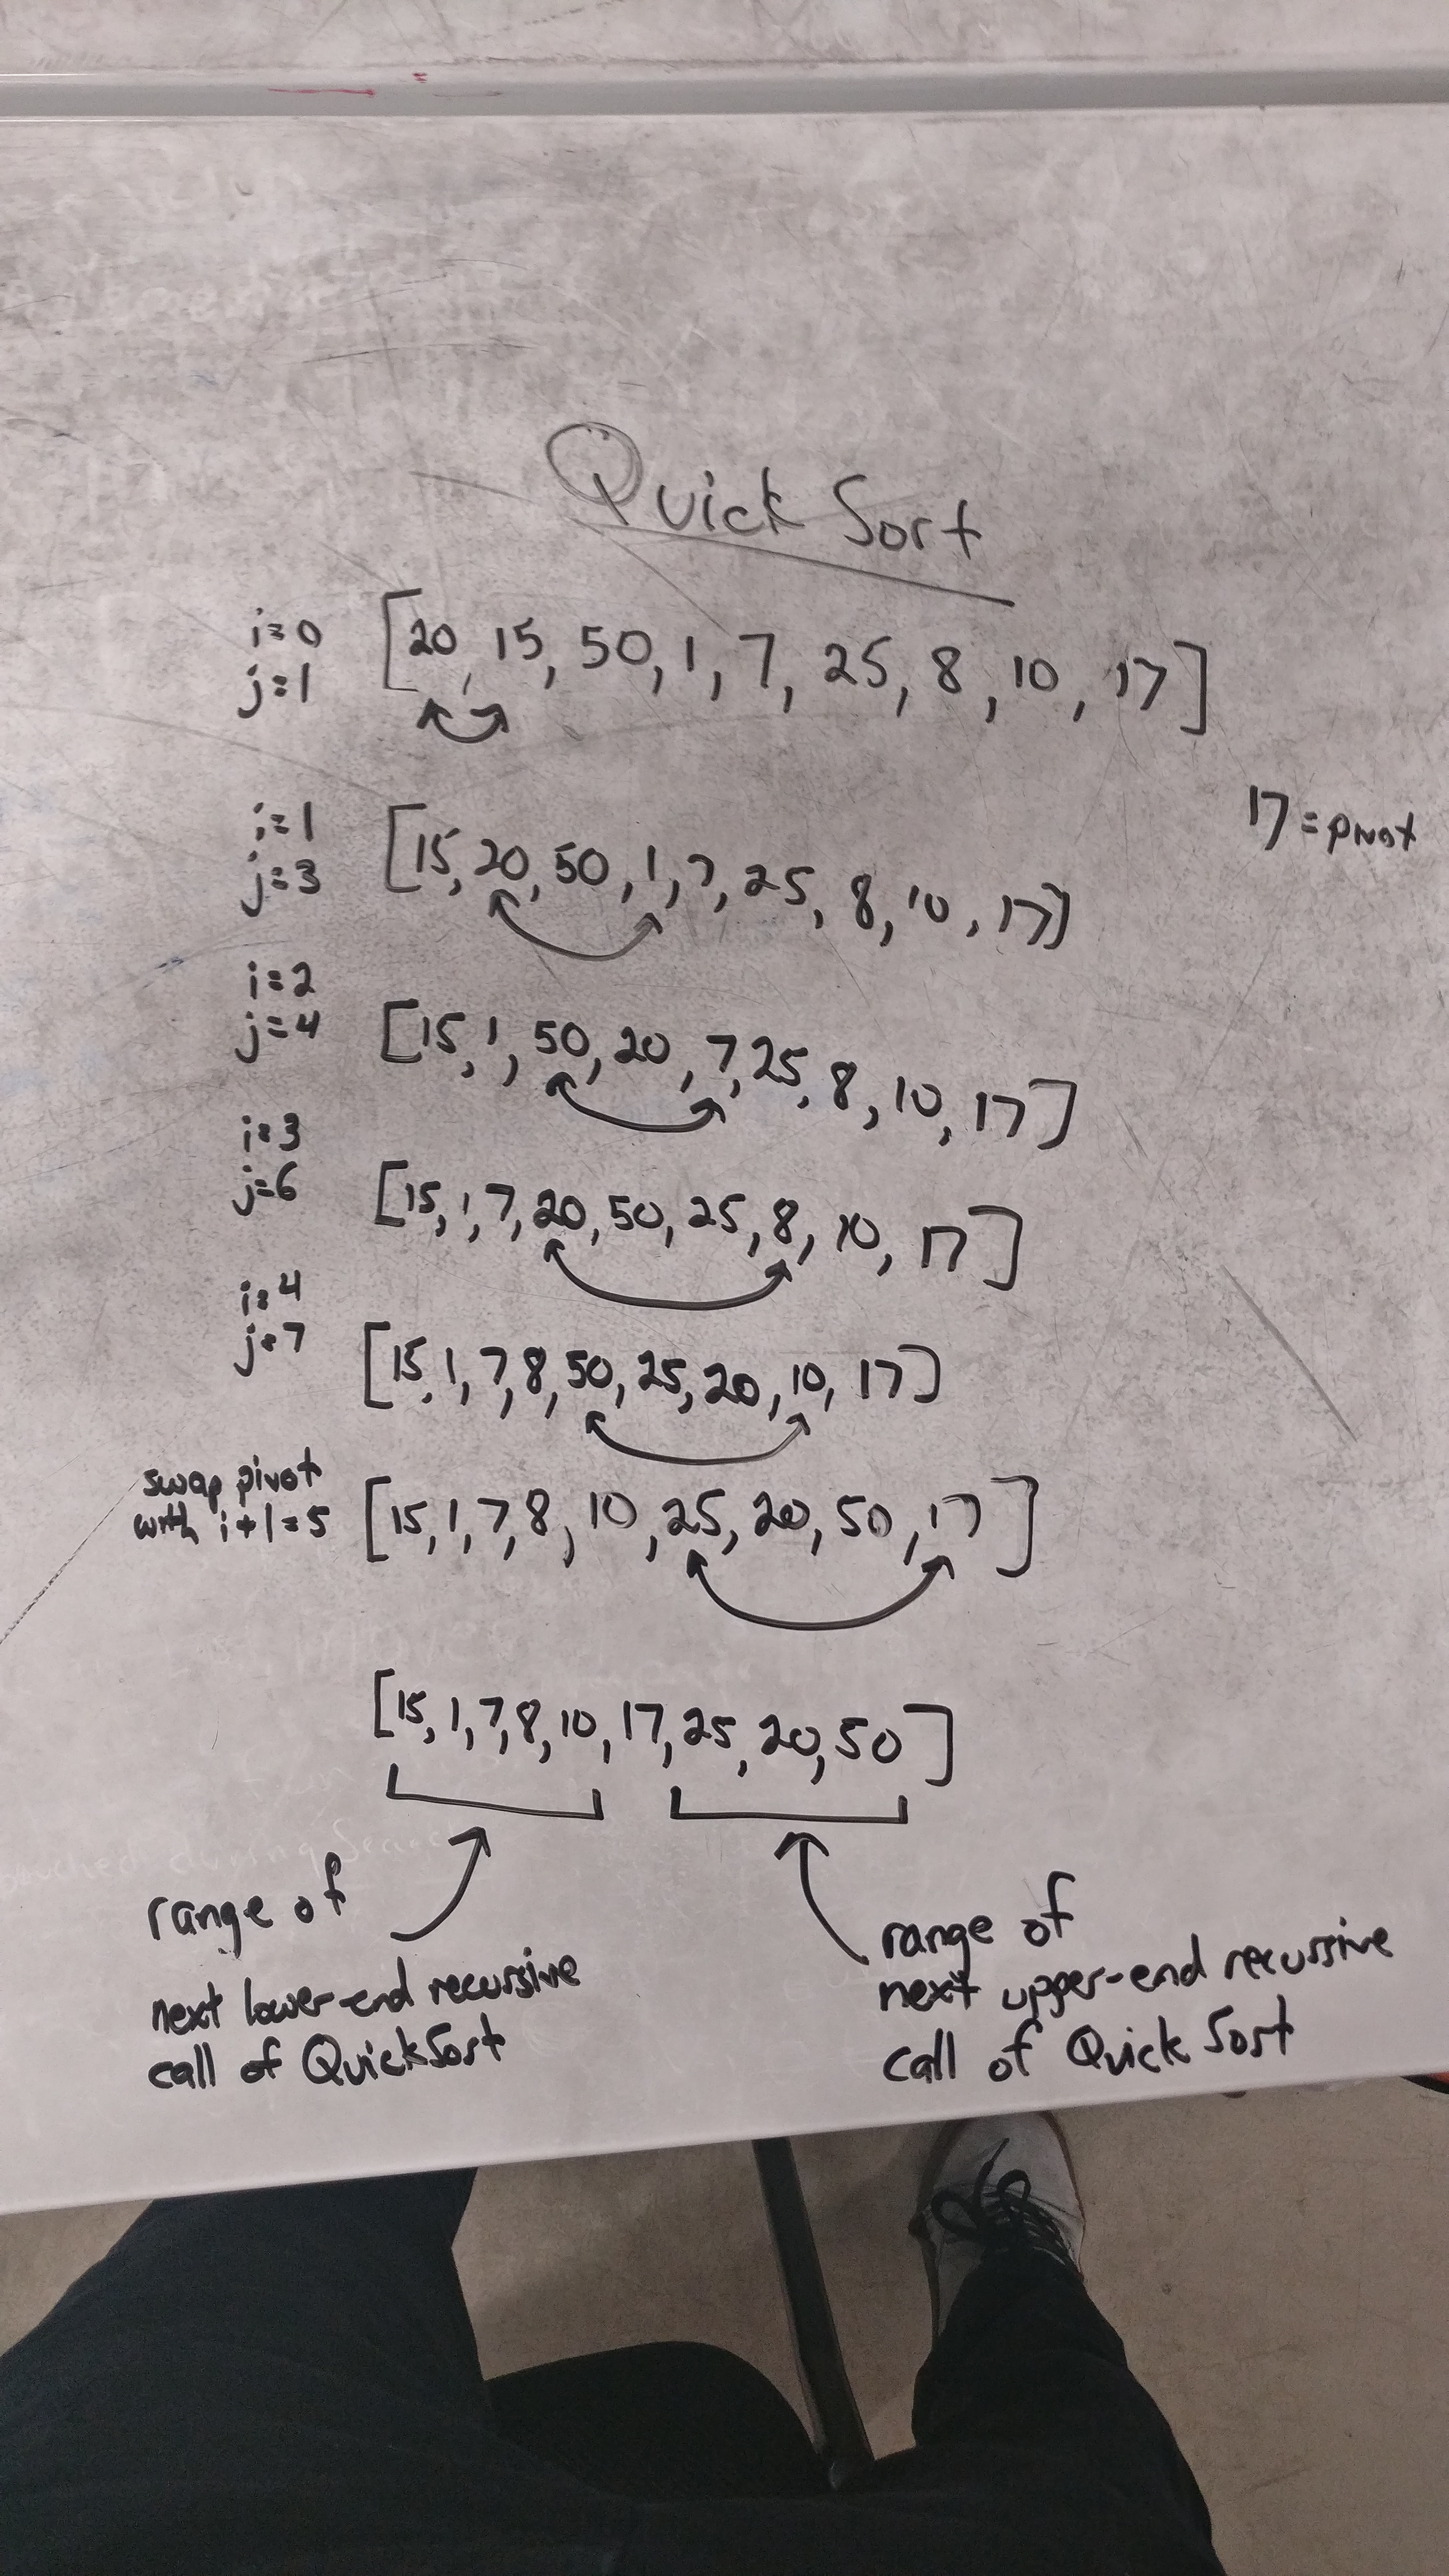 Quick Sort
i=0 [20, 15, 50, 1, 7, 25, 8, 10, 17]
j=1
17 = pivot
i=1 [15, 20, 50, 1, 7, 25, 8, 10, 17]
j=3
i=2
j=4 [15, 1, 50, 20, 7, 25, 8, 10, 17]
i=3
j=6 [15, 1, 7, 20, 50, 25, 8, 10, 17]
i=4
j=7 [15, 1, 7, 8, 50, 25, 20, 10, 17]
swap pivot
with i+1=5 [15, 1, 7, 8, 10, 25, 20, 50, 17]
[15, 1, 7, 8, 10, 17, 25, 20, 50]
range of
next lower-end recursive
call of QuickSort
range of
next upper-end recursive
call of Quick Sort